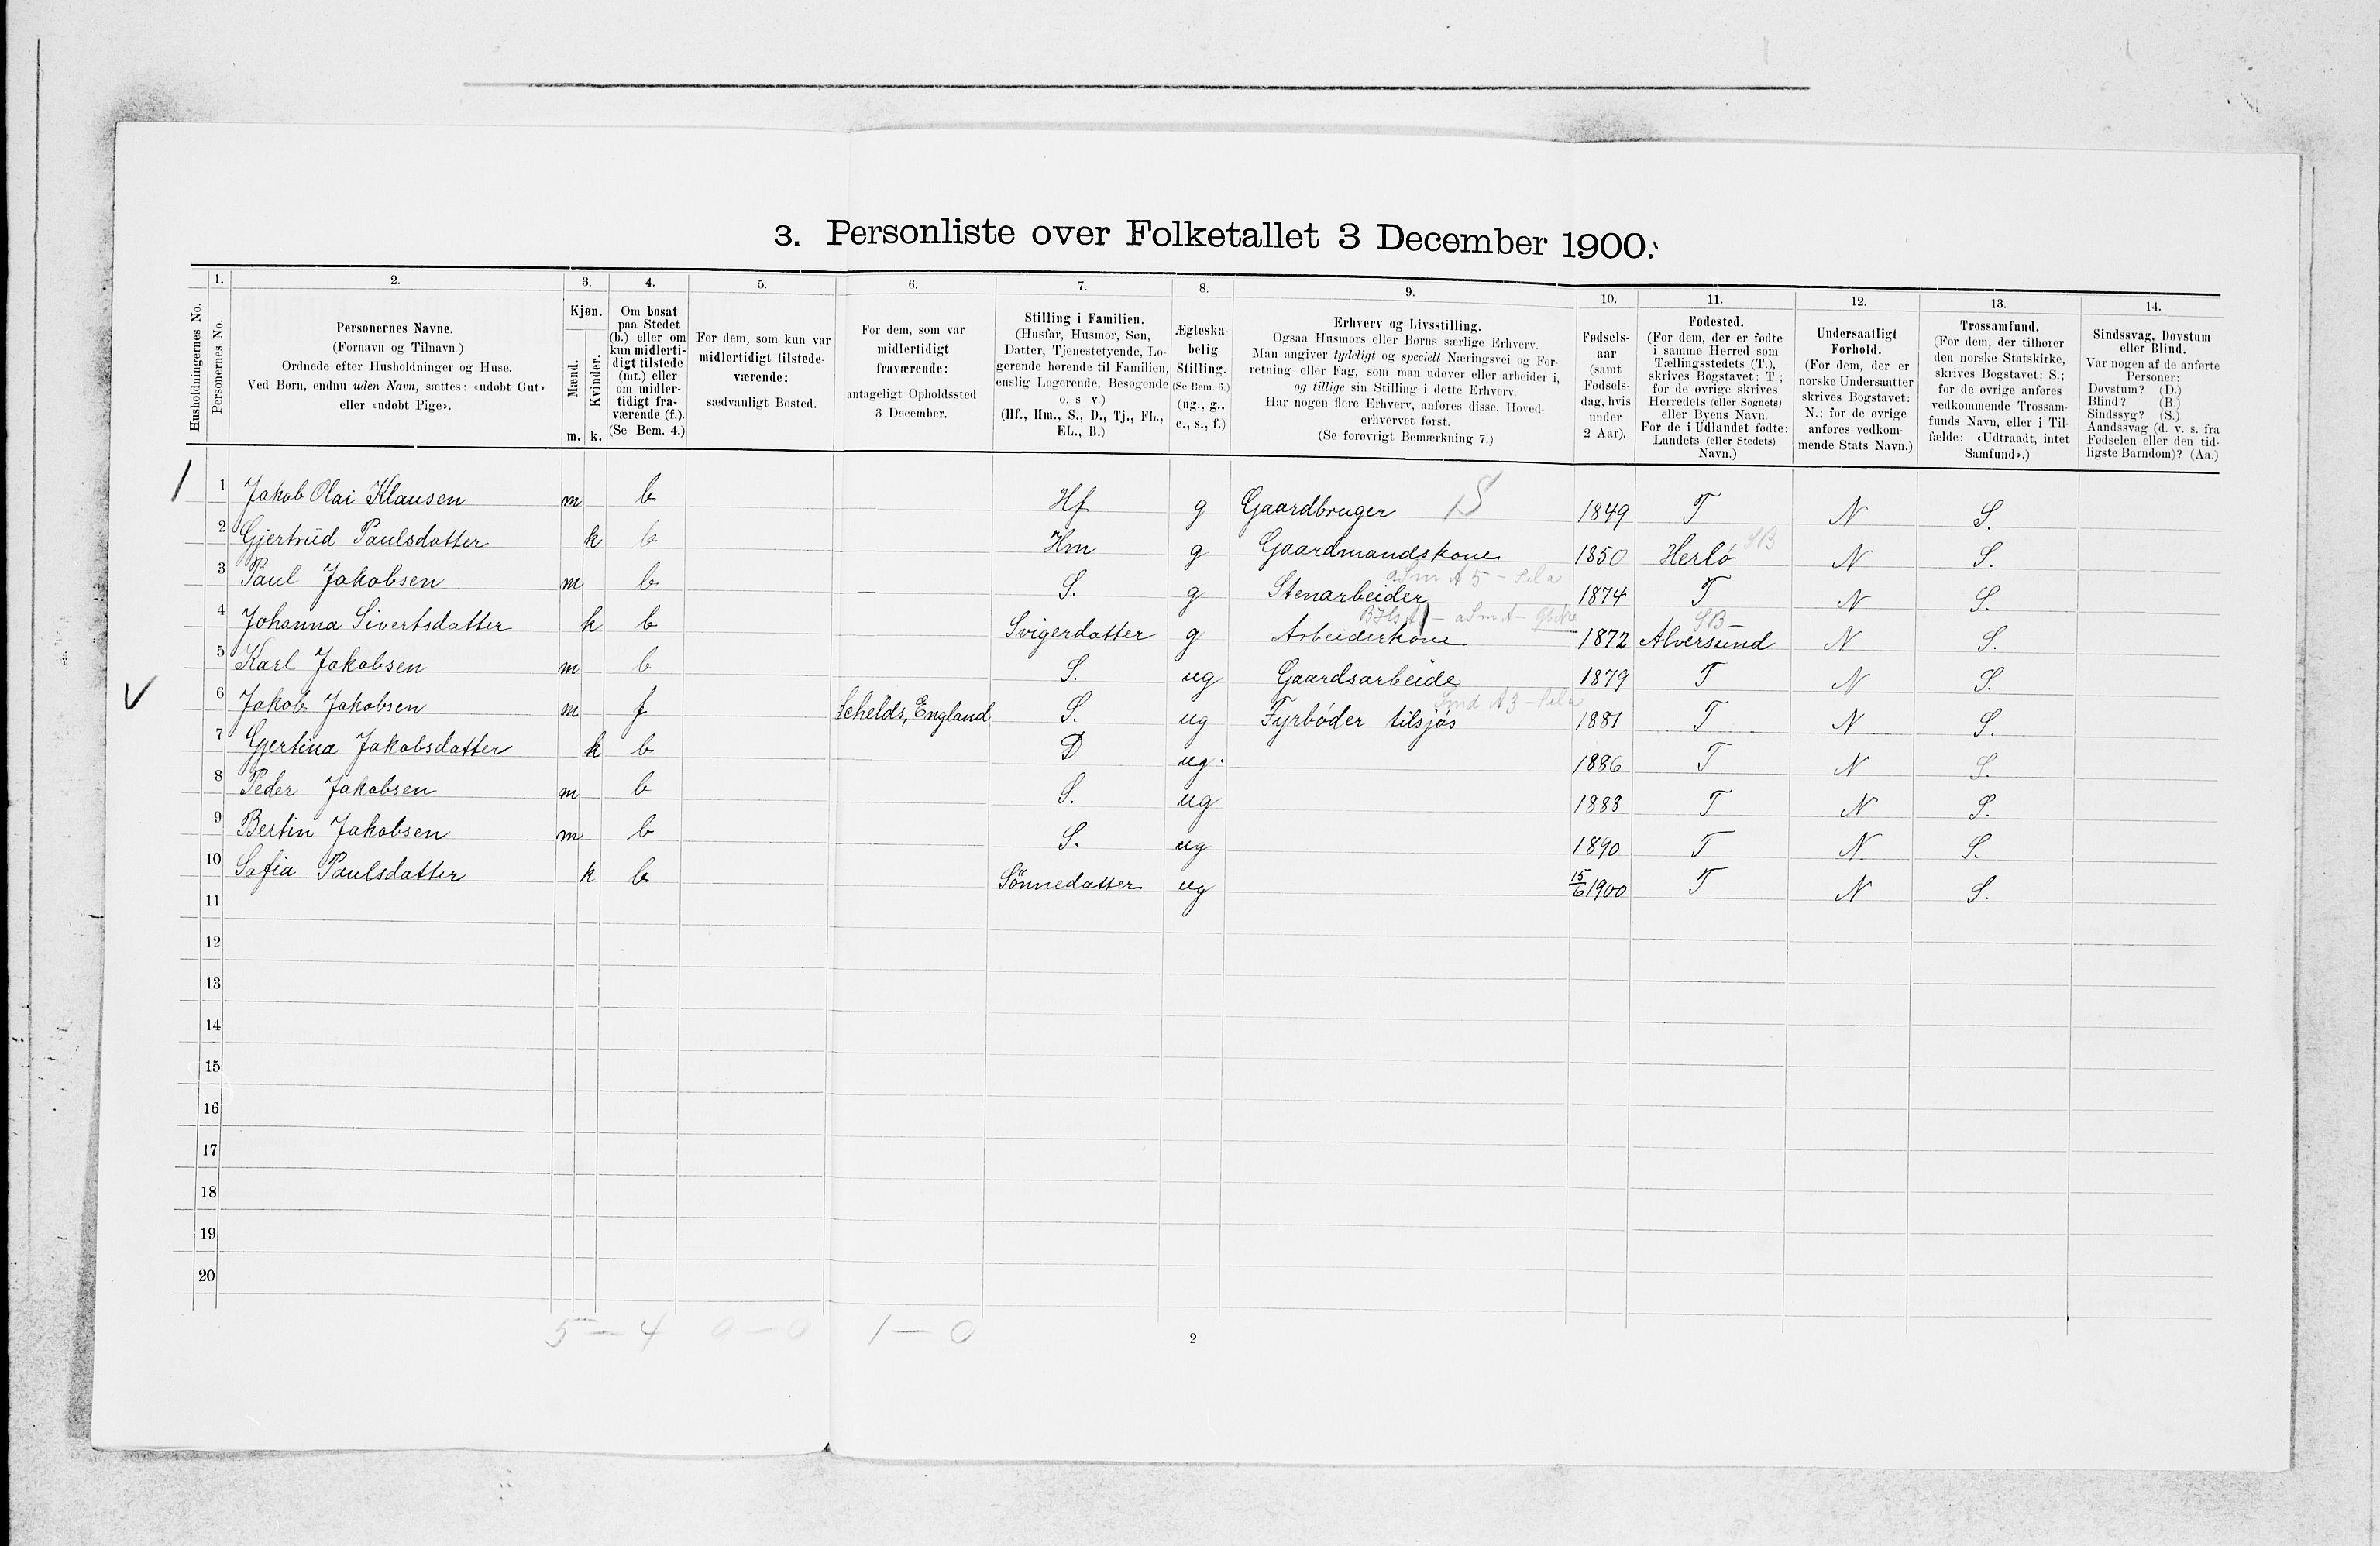 3. Personliste over Folketallet 3 December 1900.
Husholdningernes No.
1. Personernes No.
2. Personernes Navne.
(Fornavn og Tilnavn)
Ordnede efter Husholdninger og Huse.
Ved Børn, endnu uden Navn, sættes: «udøbt Gut»
eller «udøbt Pige».
3. Kjøn.
Mænd. m.
Kvinder. k.
4. Om bosat
paa Stedet
(b.) eller om
kun midlerti-
digt tilstede
(mt.) eller
om midler-
tidigt fra-
værende (f.).
(Se Bem. 4.)
5. For dem, som kun var
midlertidigt tilstede-
værende:
sædvanligt Bosted.
6. For dem, som var
midlertidigt
fraværende:
antageligt Opholdssted
3 December.
7. Stilling i Familien.
(Husfar, Husmor, Søn,
Datter, Tjenestetyende, Lo-
gerende hørende til Familien,
enslig Logerende, Besøgende
o. s v.)
(Hf., Hm., S., D., Tj., FL.,
EL., B.)
8. Ægteska-
belig
Stilling.
(Se Bem. 6.)
(ug., g.,
e., s., f.)
9. Erhverv og Livsstilling.
Ogsaa Husmors eller Børns særlige Erhverv.
Man angiver tydeligt og specielt Næringsvei og For-
retning eller Fag, som man udøver eller arbeider i,
og tillige sin Stilling i dette Erhverv.
Har nogen flere Erhverv, anføres disse, Hoved-
erhvervet først.
(Se forøvrigt Bemærkning 7.)
10. Fødsels-
aar
(samt
Fødsels-
dag, hvis
under
2 Aar).
11. Fødested.
(For dem, der er fødte
i samme Herred som
Tællingsstedets (T.),
skrives Bogstavet: T.;
for de øvrige skrives
Herredets (eller Sognets)
eller Byens Navn.
For de i Udlandet fødte:
Landets (eller Stedets)
Navn.)
12. Undersaatligt
Forhold.
(For dem, der er
norske Undersaatter
skrives Bogstavet:
N.; for de øvrige
anføres vedkom-
mende Stats Navn.)
13. Trossamfund.
(For dem, der tilhører
den norske Statskirke,
skrives Bogstavet: S.;
for de øvrige anføres
vedkommende Trossam-
funds Navn, eller i Til-
fælde: «Udtraadt, intet
Samfund».)
14. Sindssvag, Døvstum
eller Blind.
Var nogen af de anførte
Personer:
Døvstum? (D.)
Blind? (B.)
Sindssyg? (S.)
Aandssvag (d. v. s. fra
Fødselen eller den tid-
ligste Barndom)? (Aa.)
1 1 Jakob Olai Klausen m b Hf g Gaardbruger S 1849 T N S.
2 Gjertrud Paulsdatter k b Hm g Gaardmandskone 1850 Herlö SB N S.
3 Paul Jakobsen m b S. g Stenarbeider 1874 T N S.
4 Johanna Sivertsdatter k b Svigerdatter g Arbeiderkone 1872 Alversund SB N S.
5 Karl Jakobsen m b S. ug Gaardsarbeide 1879 T N S.
6 Jakob Jakobsen m f England S. ug Fyrböder tilsjös 1881 T N S.
7 Gjertina Jakobsdatter k b D ug. 1886 T N S.
8 Peder Jakobsen m b S. ug 1888 T N S.
9 Bertin Jakobsen m b S. ug 1890 T N S.
10 Sofia Paulsdatter k b Sönnedatter ug 15/6 1900 T N S.
11
12
13
14
15
16
17
18
19
20
5 — 4 0 — 0 1 — 0
2